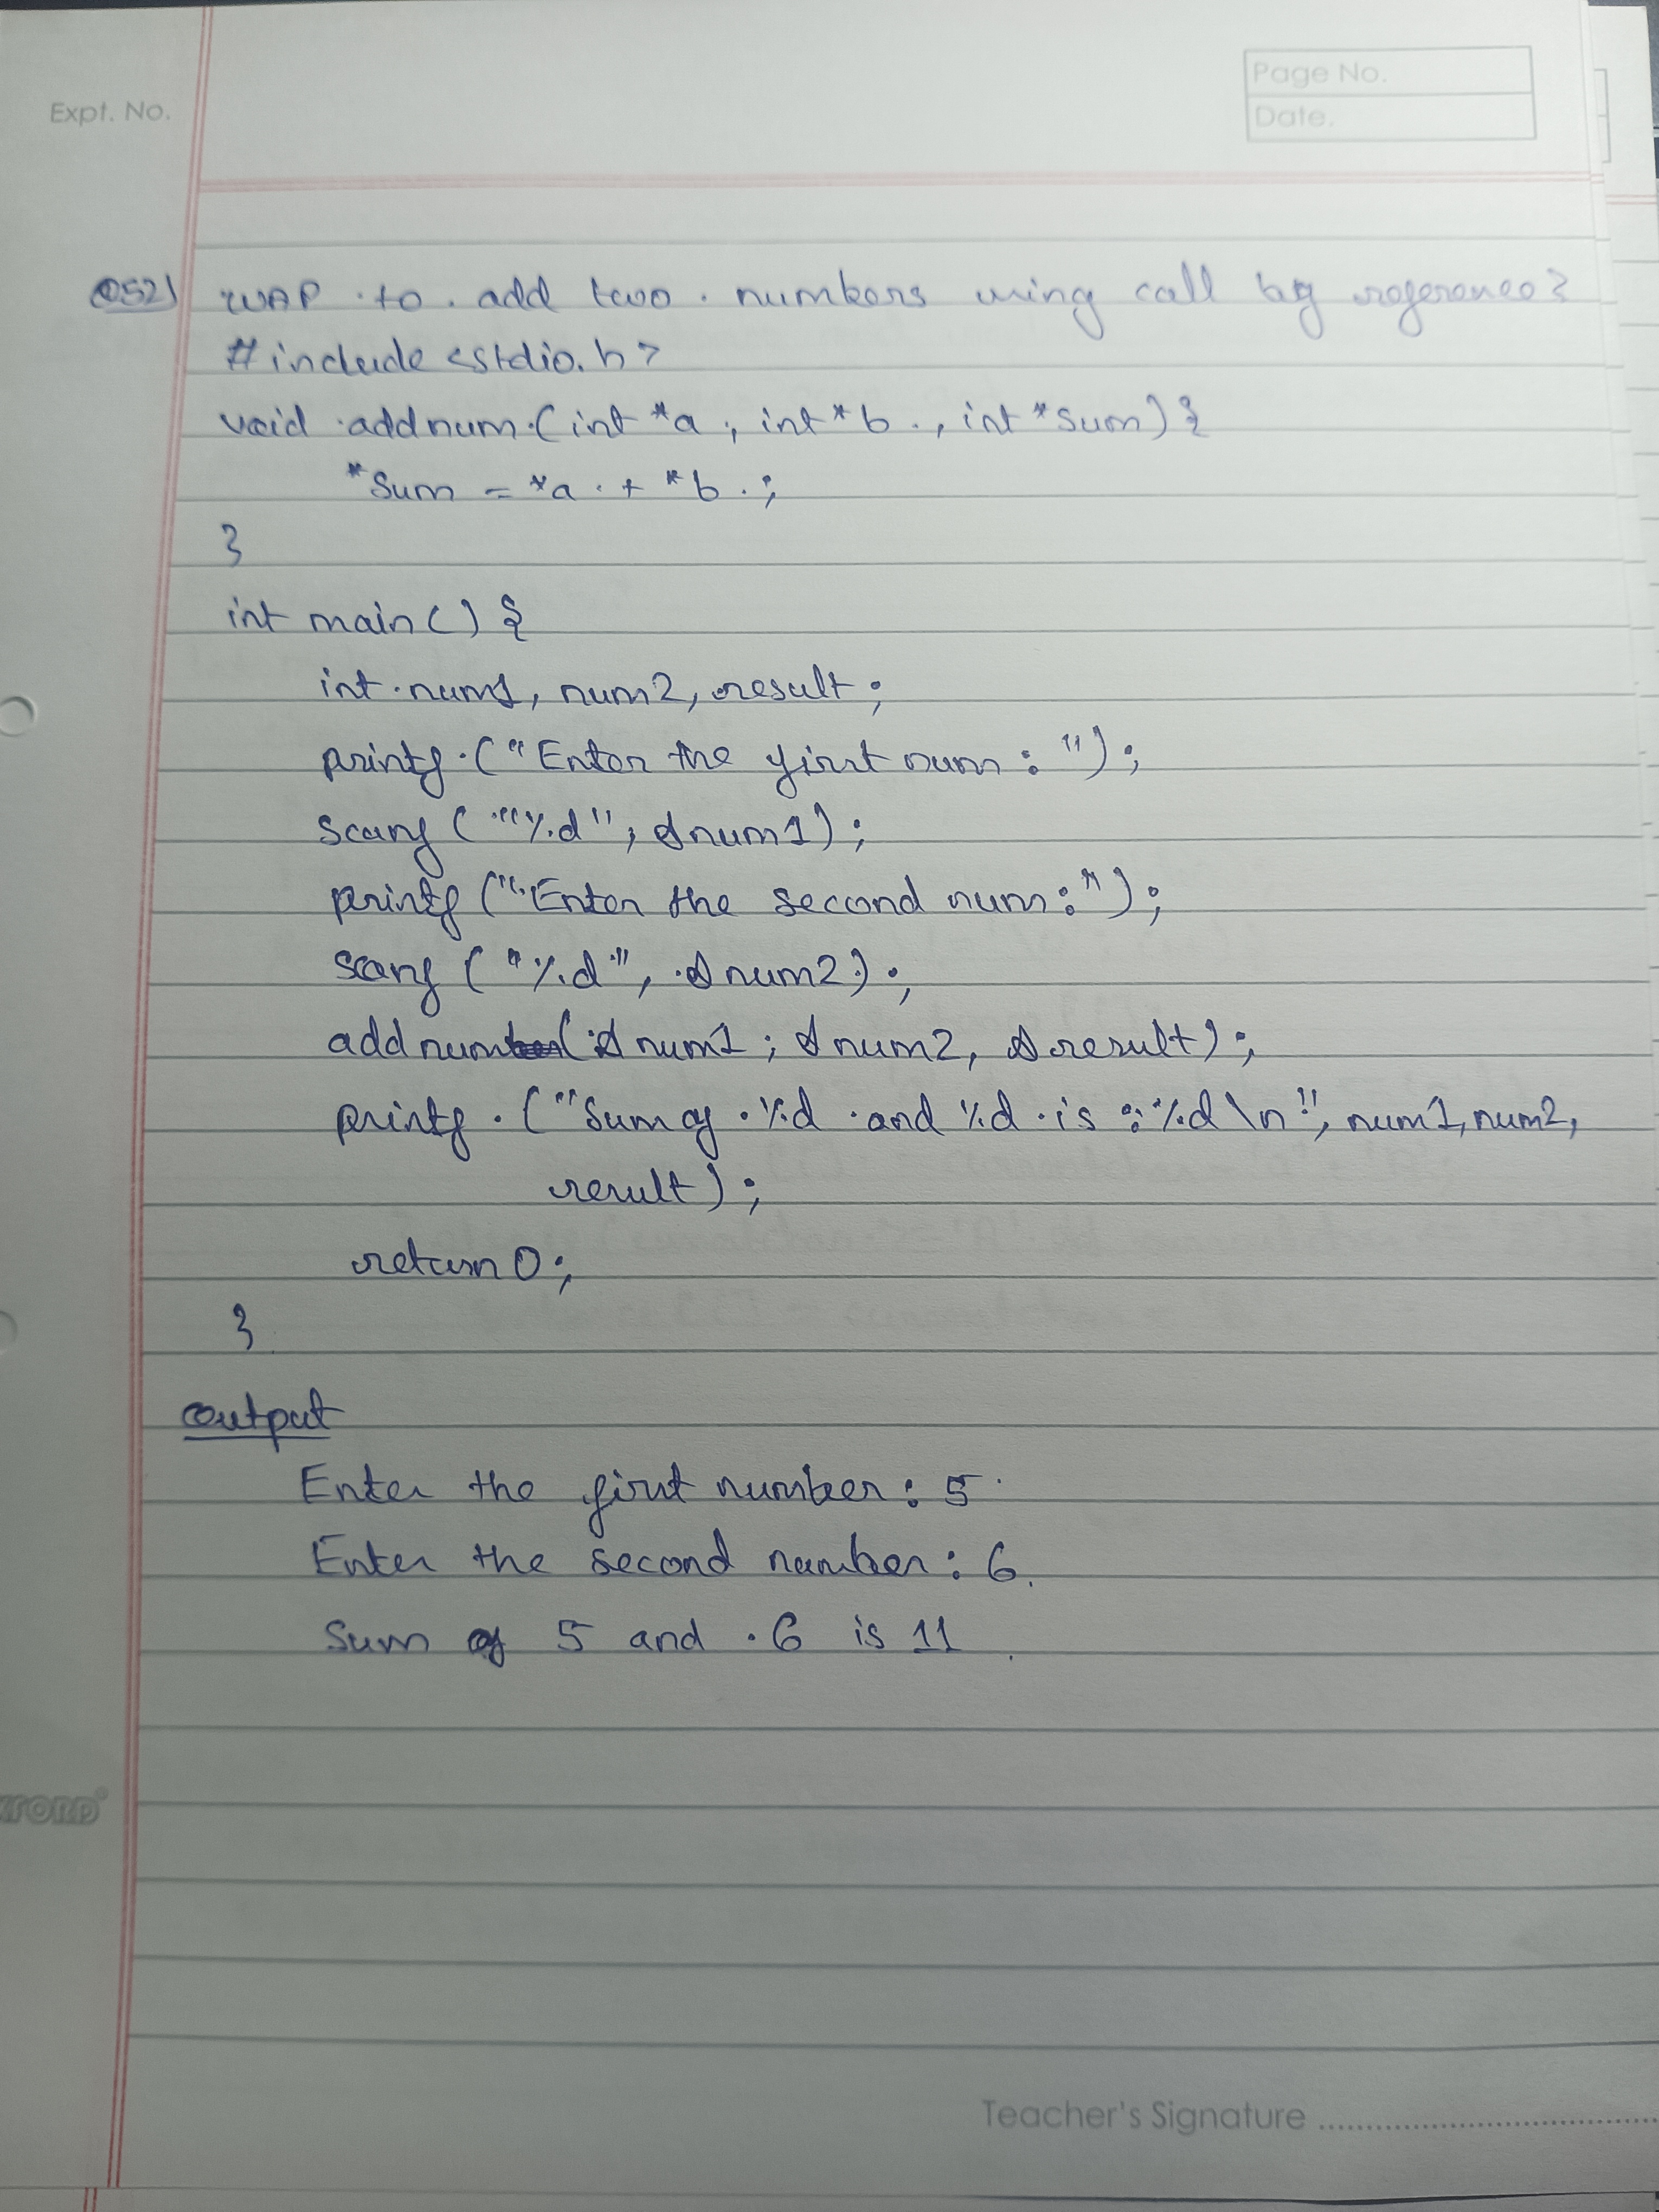 Page No.
Expt. No.
Date.
Q52) WAP to add two numbers using call by reference?
#include <stdio.h>
void addnum (int *a, int *b, int *sum) {
*sum = *a + *b ;
}
int main() {
int num1, num2, result;
printf ("Enter the first num : ");
scanf ("%d", &num1);
printf ("Enter the second num: ");
scanf ("%d", &num2);
addnum(&num1, &num2, &result);
printf ("Sum of %d and %d is : %d \n", num1, num2,
result);
return 0;
}
Output
Enter the first number : 5
Enter the second number : 6
Sum of 5 and 6 is 11
Teacher's Signature